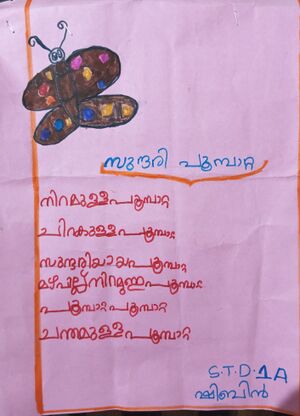 സുന്ദരി പൂമ്പാറ്റ
നിറമുള്ള പൂമ്പാറ്റ
ചിറകുള്ള പൂമ്പാറ്റ
സുന്ദരിയായ പൂമ്പാറ്റ
പൂമ്പാറ്റ പൂമ്പാറ്റ
ചന്തമുള്ള പൂമ്പാറ്റ
S.T.D.1A
ഷിബിൻ